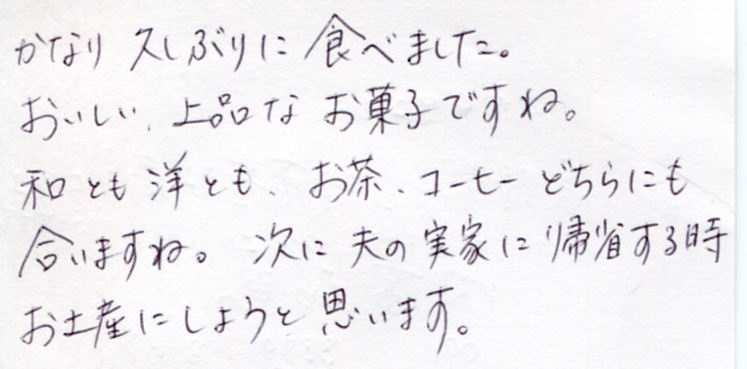 かなり久しぶりに食べました。
おいしい、上品なお菓子ですね。
和とも洋とも、お茶、コーヒーどちらにも
合いますね。次に夫の実家に帰省する時
お土産にしようと思います。